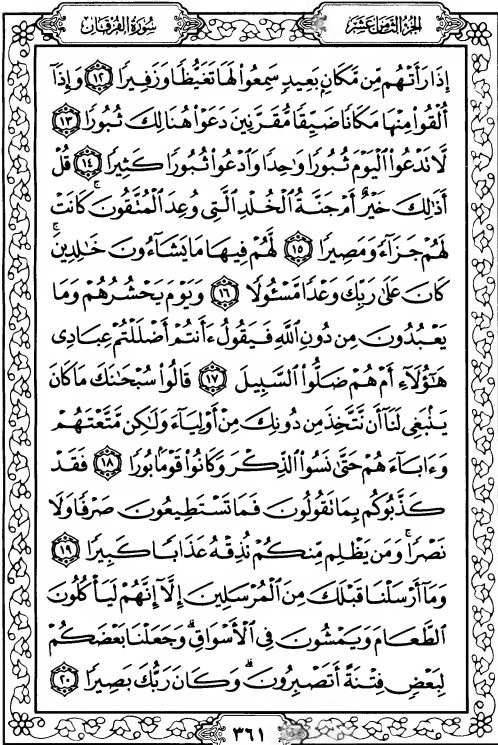 سُورَةُ الفُرْقَان
الجزء الثامن عشر
إِذَا رَأَتْهُم مِّن مَّكَانٍ بَعِيدٍ سَمِعُوا۟ لَهَا تَغَيُّظًا وَزَفِيرًا ١٢ وَإِذَآ
أُلْقُوا۟ مِنْهَا مَكَانًا ضَيِّقًا مُّقَرَّنِينَ دَعَوْا۟ هُنَالِكَ ثُبُورًا ١٣
لَّا تَدْعُوا۟ ٱلْيَوْمَ ثُبُورًا وَٰحِدًا وَٱدْعُوا۟ ثُبُورًا كَثِيرًا ١٤ قُلْ
أَذَٰلِكَ خَيْرٌ أَمْ جَنَّةُ ٱلْخُلْدِ ٱلَّتِى وُعِدَ ٱلْمُتَّقُونَ ۚ كَانَتْ
لَهُمْ جَزَآءً وَمَصِيرًا ١٥ لَّهُمْ فِيهَا مَا يَشَآءُونَ خَٰلِدِينَ ۚ
كَانَ عَلَىٰ رَبِّكَ وَعْدًا مَّسْـُٔولًا ١٦ وَيَوْمَ يَحْشُرُهُمْ وَمَا
يَعْبُدُونَ مِن دُونِ ٱللَّهِ فَيَقُولُ ءَأَنتُمْ أَضْلَلْتُمْ عِبَادِى
هَٰٓؤُلَآءِ أَمْ هُمْ ضَلُّوا۟ ٱلسَّبِيلَ ١٧ قَالُوا۟ سُبْحَٰنَكَ مَا كَانَ
يَنۢبَغِى لَنَآ أَن نَّتَّخِذَ مِن دُونِكَ مِنْ أَوْلِيَآءَ وَلَٰكِن مَّتَّعْتَهُمْ
وَءَابَآءَهُمْ حَتَّىٰ نَسُوا۟ ٱلذِّكْرَ وَكَانُوا۟ قَوْمًۢا بُورًا ١٨ فَقَدْ
كَذَّبُوكُم بِمَا تَقُولُونَ فَمَا تَسْتَطِيعُونَ صَرْفًا وَلَا
نَصْرًا ۚ وَمَن يَظْلِم مِّنكُمْ نُذِقْهُ عَذَابًا كَبِيرًا ١٩
وَمَآ أَرْسَلْنَا قَبْلَكَ مِنَ ٱلْمُرْسَلِينَ إِلَّآ إِنَّهُمْ لَيَأْكُلُونَ
ٱلطَّعَامَ وَيَمْشُونَ فِى ٱلْأَسْوَاقِ ۗ وَجَعَلْنَا بَعْضَكُمْ
لِبَعْضٍ فِتْنَةً أَتَصْبِرُونَ ۗ وَكَانَ رَبُّكَ بَصِيرًا ٢٠
٣٦١